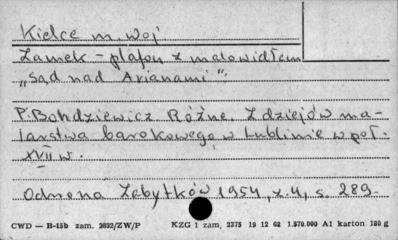 Kielce m. woj
Zamek - plafon z malowidłem
„Sąd nad Arianami":
P. Bohdziewicz Różne. Z dziejów ma-
larstwa barokowego w Lublinie w poł.
XVII w.
Odmena Zabytków 1954, z. 4, s. 289.
CWD — B-15b zam. 2032/ZW/P KZG 1 zam, 2375 19 12 62 1.570.000 A1 karton 180 g